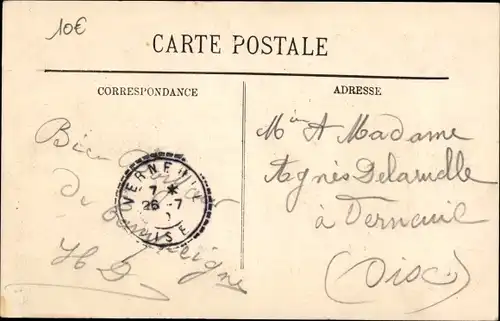 10€
CARTE POSTALE
CORRESPONDANCE
ADRESSE
Bien
de Compiègne
HD
VERNEUIL
7 *
26 - 7
OISE
Mr et Madame
Agnès Delaruelle
à Verneuil
(Oise)